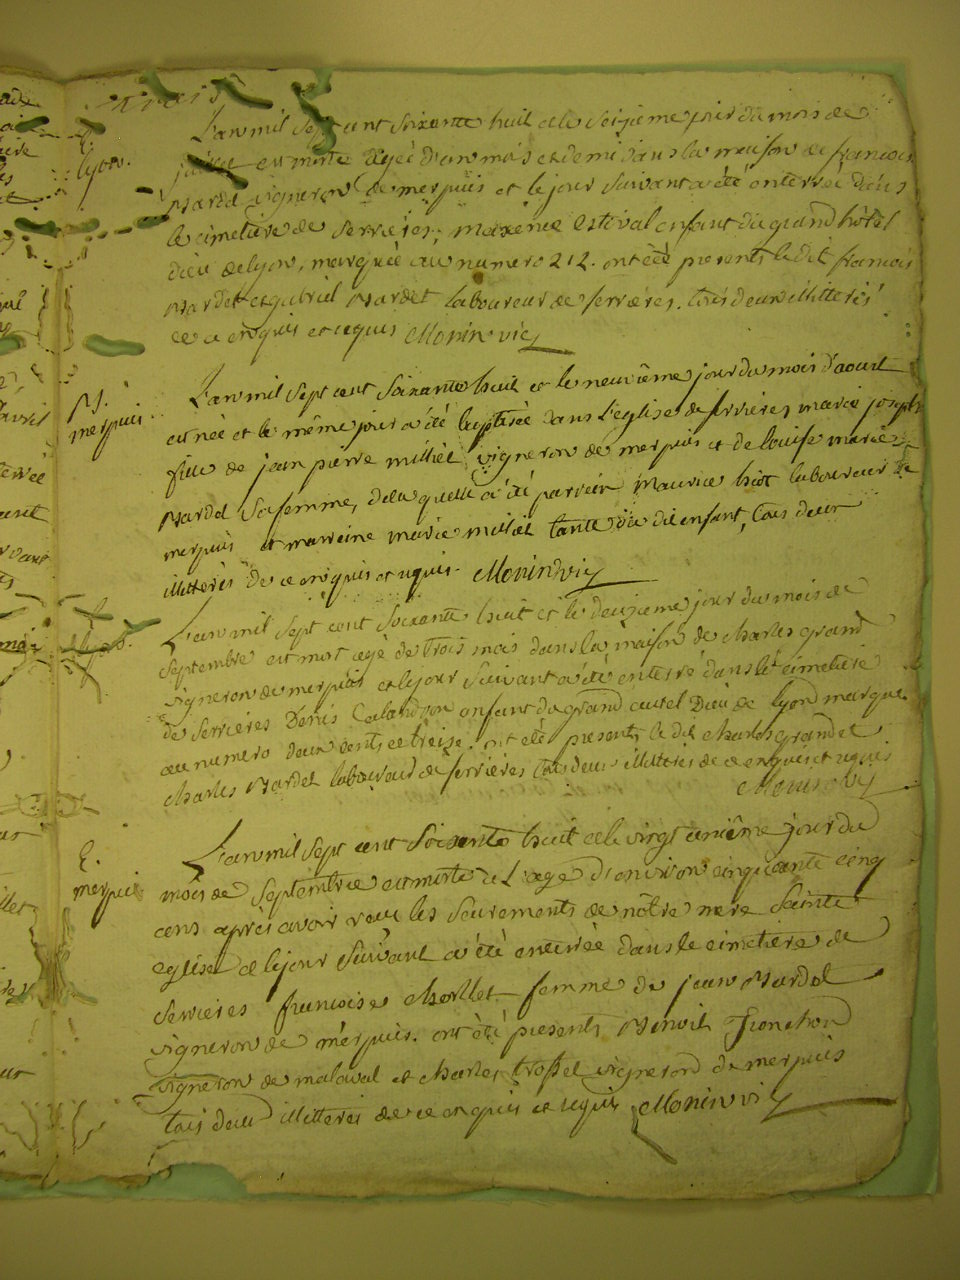 trois
L'an mil sept cent soixante huit et le seizieme jour du mois de
est morte agée d'un mois et demi dans la maison de francois
nardet vigneron de merpuis et le jour suivant a été enterrée dans
le cimetiere de serrières, maxence estival enfant du grand hôtel
dieu de lyon, marquée au numero 212. ont été presents le dit francois
nardet et gabriel nardet laboureur de serrieres. tous deux illitterés
de ce enquis et requis Monin vic
lyon.
L'an mil sept cent soixante huit et le neuvième jour du mois d'aoust
est née et le même jour a été baptisée dans l'eglise de serrières marie joseph
fille de jean pierre milliet vigneron de merpuis et de louise marie
nardet sa femme, de laquelle a été parrein maurice biot laboureur de
merpuis et marreine marie milliet tante du dit enfant, tous deux
illitterés de ce enquis et requis. Monin vic
merpuis
L'an mil sept cent soixante huit et le deuzieme jour du mois de
septembre est mort agé de trois mois dans la maison de charles grand
vigneron de merpuis et le jour suivant a été enterré dans le cimetiere
de serrieres Denis enfant du grand autel Dieu de lyon marqué
au numero deux cents et treize. ont été presents le dit charles grand et
charles nardet laboureur de serrières tous deux illitterés de ce enquis et requis
Monin vic
lyon.
L'an mil sept cent soixante huit et le vingt unième jour du
mois de septembre est morte a l'age d'environ cinquante cinq
ans après avoir reçu les sacrements de nôtre mere sainte
eglise et le jour suivant a été enterrée dans le cimetiere de
serrieres francoise femme de jean nardet
vigneron de merpuis. ont été presents Benoit
vigneron de malaval et charles trosset vigneron de merpuis
tous deux illitterés de ce enquis et requis Monin vic
E.
merpuis